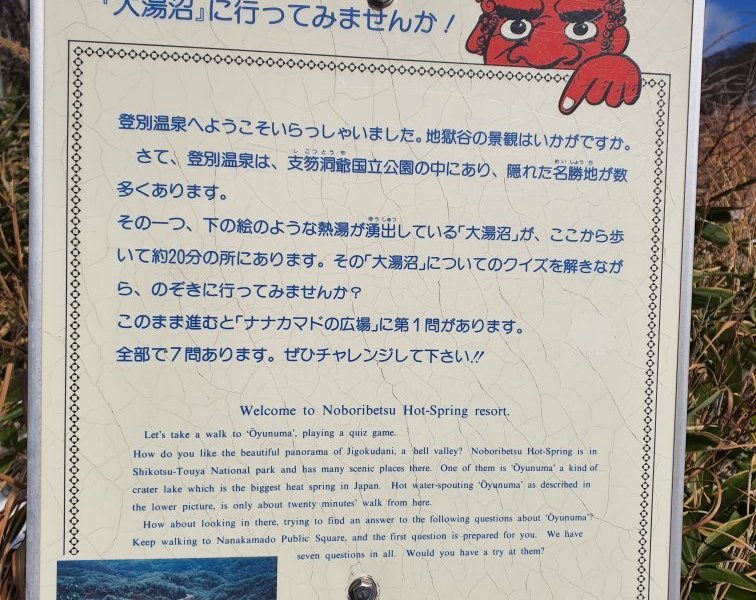 『大湯沼』に行ってみませんか!
登別温泉へようこそいらっしゃいました。地獄谷の景観はいかがですか。
しこつとうや
めいしょうち
さて、登別温泉は、支笏洞爺国立公園の中にあり、隠れた名勝地が数
多くあります。
ゆうしゅつ
その一つ、下の絵のような熱湯が湧出している「大湯沼」が、ここから歩
いて約20分の所にあります。その「大湯沼」についてのクイズを解きなが
ら、のぞきに行ってみませんか?
このまま進むと「ナナカマドの広場」に第1問があります。
全部で7問あります。ぜひチャレンジして下さい!!
Welcome to Noboribetsu Hot-Spring resort.
Let's take a walk to ‘Ōyunuma’, playing a quiz game.
How do you like the beautiful panorama of Jigokudani, a hell valley? Noboribetsu Hot-Spring is in
Shikotsu-Touya National park and has many scenic places there. One of them is ‘Ōyunuma’ a kind of
crater lake which is the biggest heat spring in Japan. Hot water-spouting ‘Ōyunuma’ as described in
the lower picture, is only about twenty minutes' walk from here.
How about looking in there, trying to find an answer to the following questions about ‘Ōyunuma’?
Keep walking to Nanakamado Public Square, and the first question is prepared for you. We have
seven questions in all. Would you have a try at them?